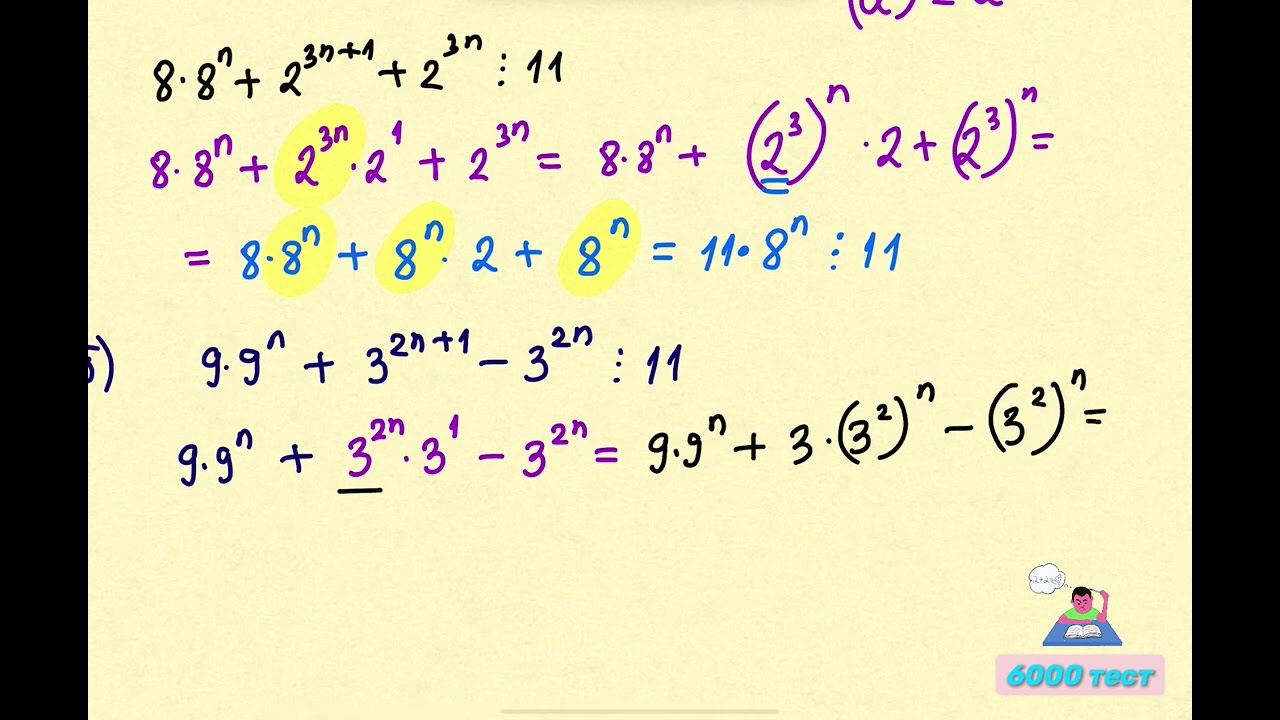 8·8ⁿ + 2³ⁿ⁺¹ + 2³ⁿ ⋮ 11
8·8ⁿ + 2³ⁿ · 2¹ + 2³ⁿ = 8·8ⁿ + (2³)ⁿ · 2 + (2³)ⁿ =
= 8·8ⁿ + 8ⁿ · 2 + 8ⁿ = 11·8ⁿ ⋮ 11
9·9ⁿ + 3²ⁿ⁺¹ − 3²ⁿ ⋮ 11
9·9ⁿ + 3²ⁿ · 3¹ − 3²ⁿ = 9·9ⁿ + 3·(3²)ⁿ − (3²)ⁿ =
6000 тест